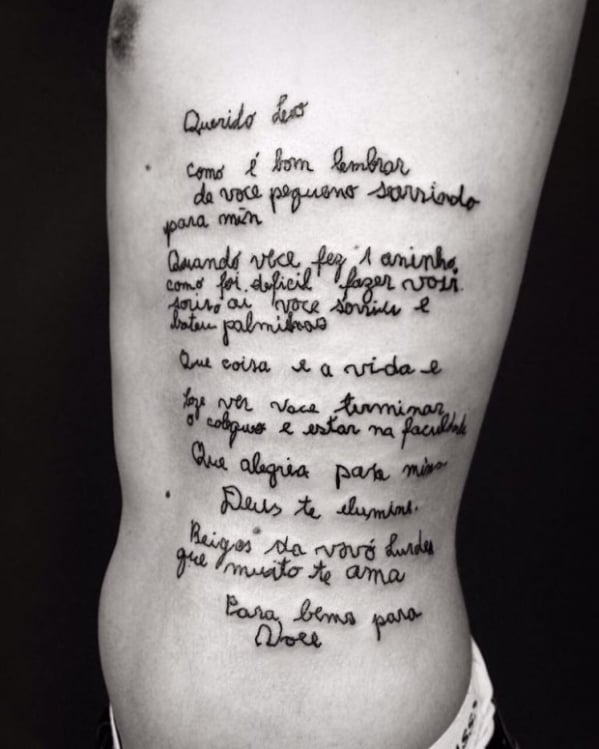 Querido Leo
como é bom lembrar
de voce pequeno sorrindo
para min
Quando voce fez 1 aninho
como foi deficil fazer voir
soriso ai voce sorriu e
bateu palminhas
Que coisa e a vida e
foze ver voce terminar
o coleguo e estar na faculdade
Que alegria para mim
Deus te elumine.
Beigos da vovó Lurdes
que muito te ama
Para bems para
Voce